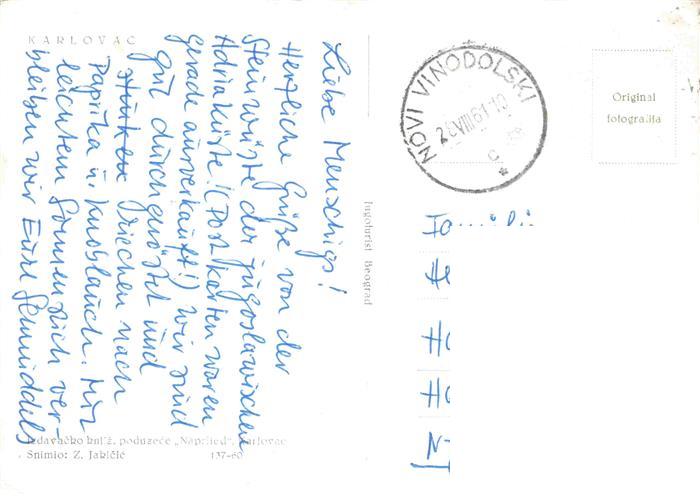 KARLOVAC
Liebe Menschigs!
Herzliche Grüße von der
Steinwüste der jugoslawischen
Adriaküste! (Postkarten waren
gerade ausverkauft!) Wir sind
gut durchgeröstet und
stinken riechen nach
Paprika u. Knoblauch. Mit
leichtem Sonnenstich ver-
bleiben wir Eure
Izdavačko knjiž. poduzeće „Naprijed", Karlovac
Snimio: Z. Jakičić 137-60
Jugoturist Beograd
NOVI VINODOLSKI
VIII 61-10
c
Original
fotografija